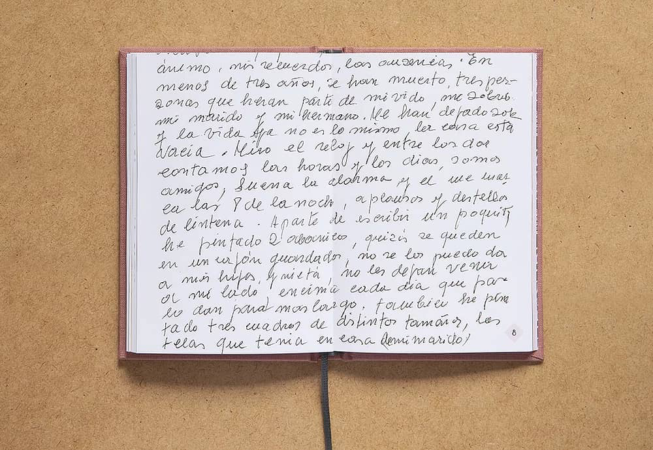 ánimo, mis recuerdos, las ausencias. En
menos de tres años, se han muerto, tres per-
sonas que heran parte de mi vida, me
mi marido y mi hermano. Me han dejado sola
y la vida ya no es lo mismo, la casa está
vacia. Miro el reloj y entre los dos
contamos las horas y los dias, somos
amigos, suena la alarma y el me mar
ca las 8 de la noch, aplausos y destellos
de lintena. Aparte de escribir un poquito
he pintado 2 abanicos, quizás se queden
en un cajón guardados, no se los puedo da
a mis hijos, y nieta no les dejan venir
a mi lado, encima cada dia que pa-
lo dan para mas largo. tambien he pin
tado tres cuadros de distintos tamaños, las
telas que tenia en casa (de mi marido)
8